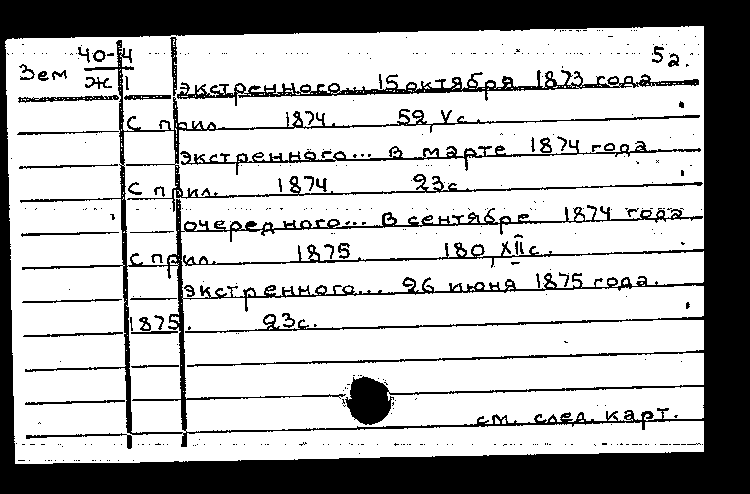 40-4 5а.
Зем Ж 1 экстренного... 15 октября 1873 года
с прил. 1874. 52, V с.
экстренного... в марте 1874 года
с прил. 1874. 23 с.
очередного... в сентябре 1874 года
с прил. 1875. 180, XII с.
экстренного... 26 июня 1875 года.
1875. 23 с.
см. след. карт.